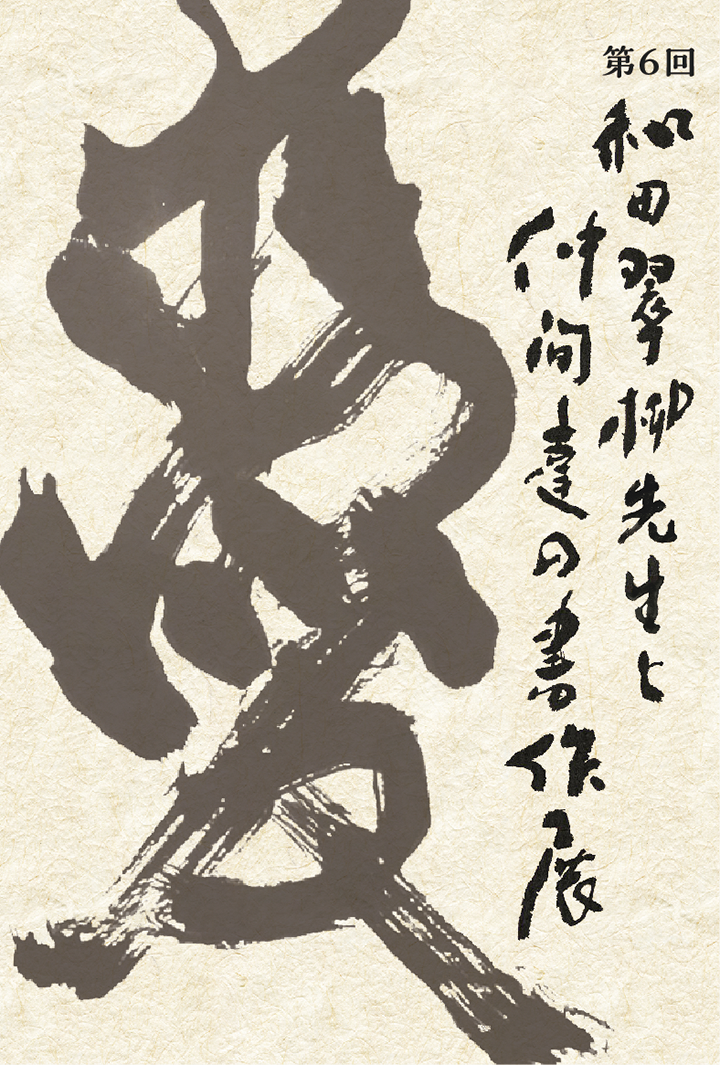 第6回
和田翠柳先生と
仲間達の書作展